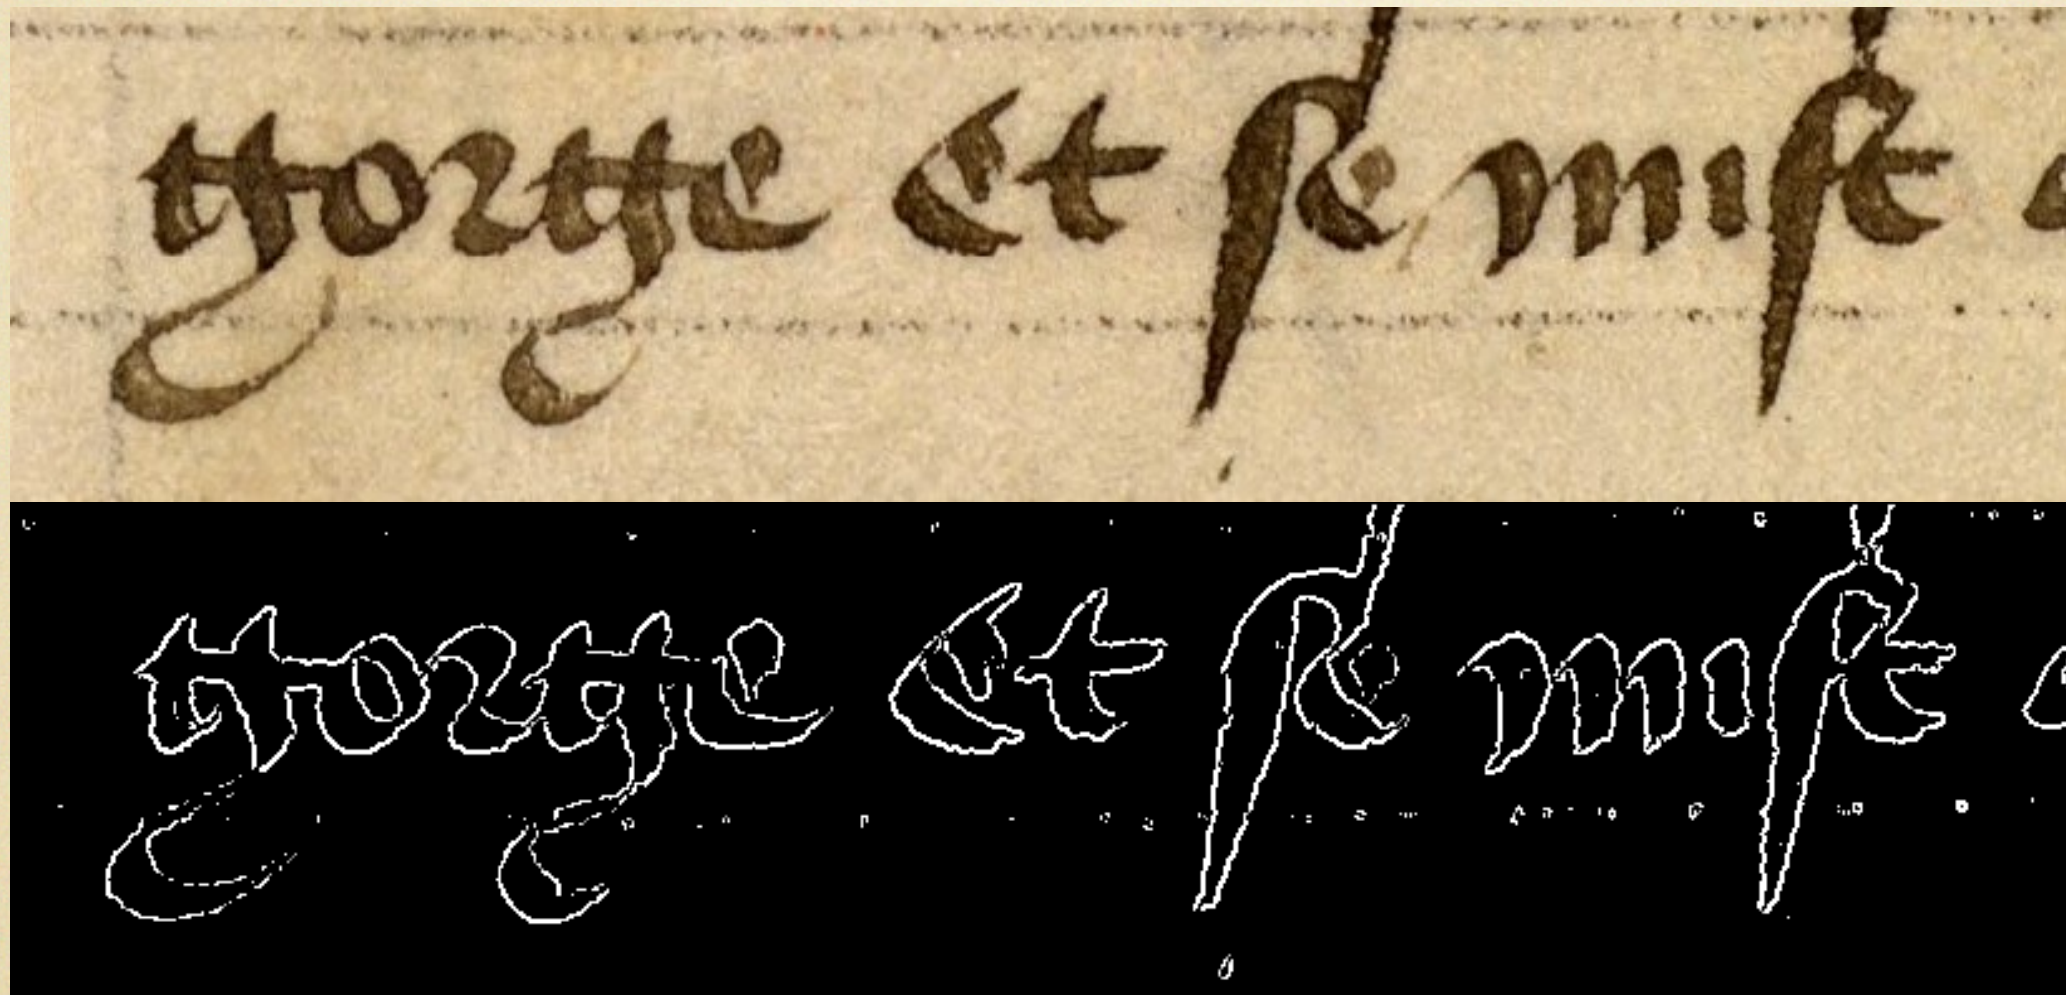 gorge Et se mist
gorge Et se mist